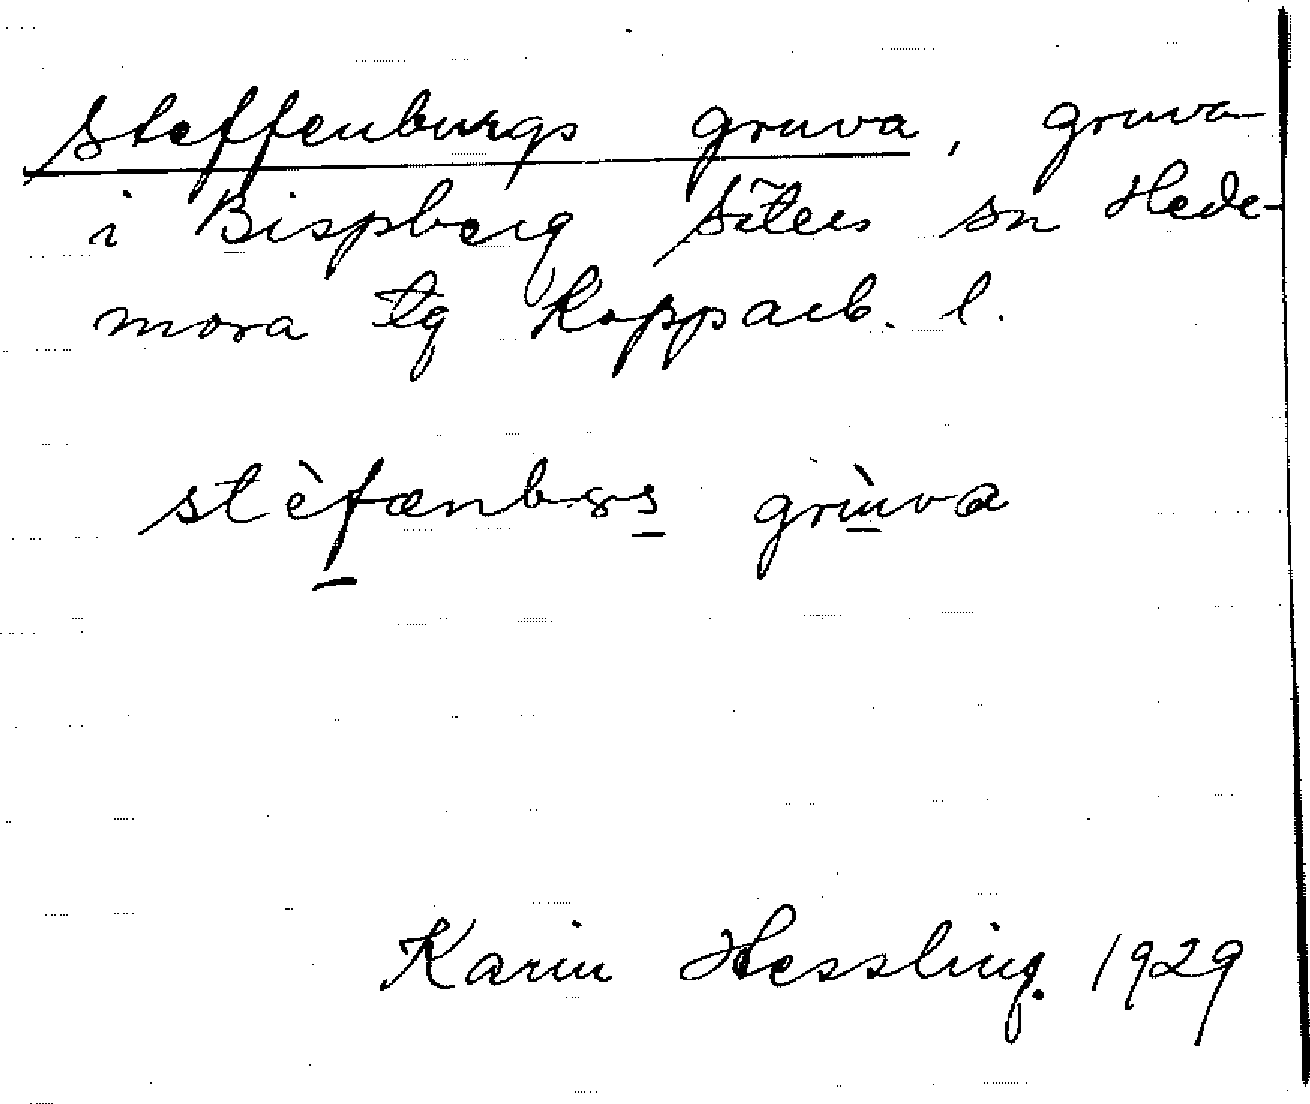 Steffenburgs gruva, gruva
i Bispberg Säters sn Hede-
mora tg Kopparb. l.
stèfænbrs grùva
Karin Hessling. 1929